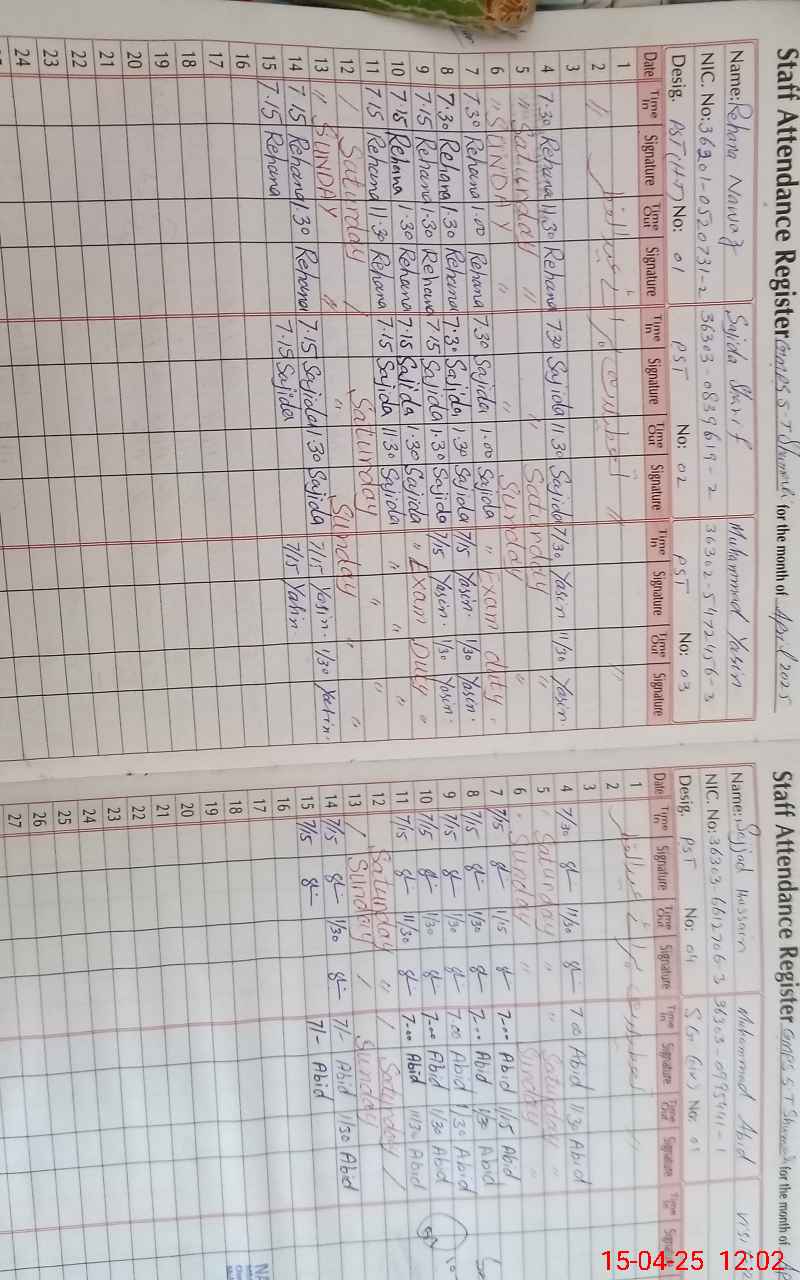 Staff Attendance Register GMPS S-T for the month of April 2025
Name: Rehana Nawaz Sajida Sharif Muhammad Yasin
NIC. No: 36201-0520731-2 36303-0839619-2 36302-5472456-3
Desig. PST (HT) No: 01 PST No: 02 PST No: 03
Date Time In Signature Time Out Signature Time In Signature Time Out Signature Time In Signature Time Out Signature
1
2
3
4 7.30 Rehana 11.30 Rehana 7.30 Sajida 11.30 Sajida 7/30 Yasin 11/30 Yasin.
5 " Saturday " " Saturday "
6 " SUNDAY " " Sunday "
7 7.30 Rehana 1.00 Rehana 7.30 Sajida 1.00 Sajida " Exam duty "
8 7.30 Rehana 1.30 Rehana 7.30 Sajida 1.30 Sajida 7/15 Yasin. 1/30 Yasin.
9 7.15 Rehana 1.30 Rehana 7.15 Sajida 1.30 Sajida 7/15 Yasin. 1/30 Yasin.
10 7.15 Rehana 1.30 Rehana 7.15 Sajida 1.30 Sajida " Exam Duty "
11 7.15 Rehana 11.30 Rehana 7.15 Sajida 11.30 Sajida " " "
12 / Saturday / Saturday " "
13 " SUNDAY " " Sunday " "
14 7.15 Rehana 1.30 Rehana 7.15 Sajida 1.30 Sajida 7/15 Yasin. 1/30 Yasin.
15 7.15 Rehana 7.15 Sajida 7/15 Yasin
16
17
18
19
20
21
22
23
24
Staff Attendance Register GMPS S T for the month of
Name: Sajjad Hussain Muhammad Abid
NIC. No: 36303-6612706-3 36303-0995441-1
Desig. PST No: 04 S.G (iv) No: 01
Date Time In Signature Time Out Signature Time In Signature Time Out Signature Time In
1
2
3
4 7/30 11/30 7.00 Abid 11.30 Abid
5 " Saturday " " Saturday "
6 " Sunday " Sunday "
7 7/15 1/15 7.00 Abid 1/15 Abid
8 7/15 1/30 7.00 Abid 1/30 Abid
9 7/15 1/30 7.00 Abid 1/30 Abid
10 7/15 1/30 7.00 Abid 1/30 Abid
11 7/15 11/30 7.00 Abid 11/30 Abid
12 Saturday " / Saturday /
13 / Sunday / Sunday
14 7/15 1/30 7/- Abid 1/30 Abid
15 7/15 7/- Abid
16
17
18
19
20
21
22
23
24
25
26
27
15-04-25 12:02